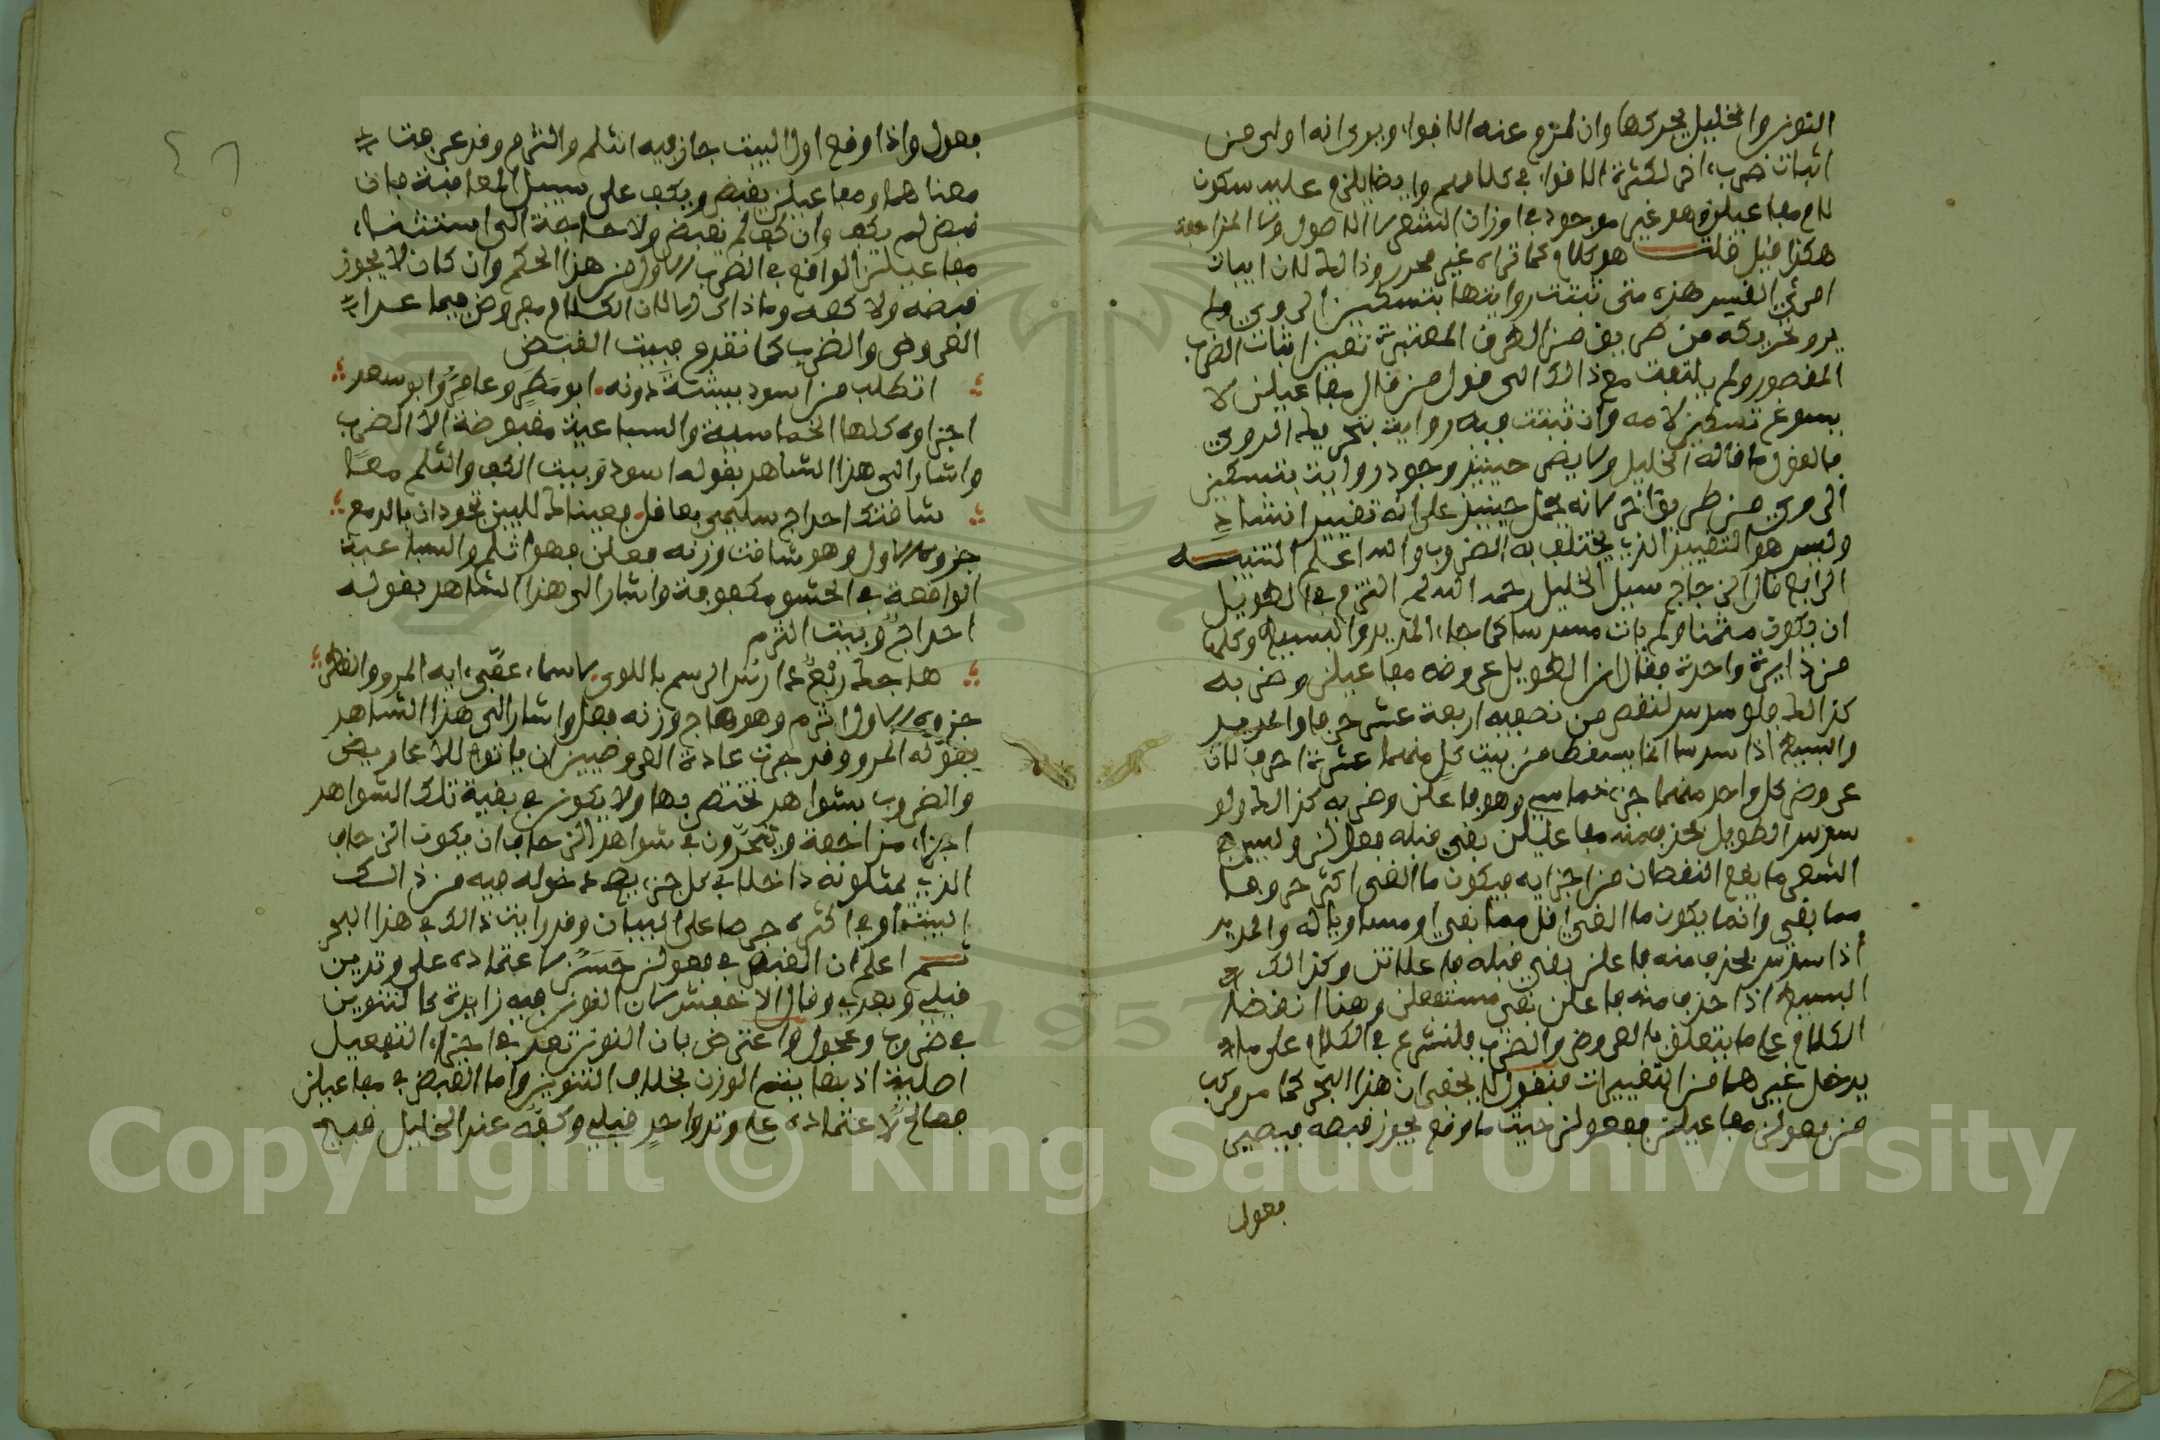 التنوين والخليل يحركها وان لزم عنه الاقواء ويرى انه اولى من
اثبات ضرب اخر لكثرة الاقواء في كلامهم وايضا يلزم عليه سكون
لام مفاعيلن وهو غير موجود في اوزان الشعر لا الاصول ولا المزاحفة
هكذا قيل قلت هو كلام كما تراه غير محرر وذالك لان ابيات
امرئ القيس هذه متى ثبتت روايتها بتسكين الروي ولم
يرو تحريكه من طريق من الطرق المعتبرة تعين اثبات الضرب
المقصور ولم يلتفت مع ذالك الى قول من قال مفاعيلن لا
يسوغ تسكين لامه وان ثبتت فيه رواية بتحريك الروي
فالقول ما قاله الخليل ولا يضر حينئذ وجود رواية بتسكين
الروي من طريق اخر لانه يحمل حينئذ على انه تقييد انشاد
وليس هو التقييد الذي يختلف به الضروب والله اعلم التنبيه
الرابع قال الزجاج سيل الخليل رحمه الله لم التزم في الطويل
ان يكون مثمنا ولم يات مسدسا كما جاء المديد والبسيط وكلها
من دايرة واحدة فقال لان الطويل عروضه مفاعيلن وضربه
كذالك فلو سدس لنقص من نصفيه اربعة عشر حرفا والمديد
والبسيط اذا سدسا انما يسقط من بيت كل منهما عشرة احرف لان
عروض كل واحد منهما جزء خماسي وهو فاعلن وضربه كذالك ولو
سدس الطويل بحذف منه مفاعيلن بقي قبله فعولن وليس في
الشعر ما يقع النقصان من اجزايه فيكون ما القي اكثر حروفا
مما بقي وانما يكون ما القي اقل مما بقي او مساويا له والمديد
اذا سدس بحذف منه فاعلن بقي قبله فاعلاتن وكذالك
البسيط اذا حذف منه فاعلن بقي مستفعلن وهنا انقضا
الكلام على ما يتعلق بالعروض والضرب ولنشرع في الكلام على ما
يدخل غيرهما من التغييرات فنقول لا يخفى ان هذا البحر كما مر مركب
من فعولن مفاعيلن ففعولن حيث ما وقع يجوز قبضه فيصير
فعول
فعول واذا وقع اول البيت جاز فيه الثلم والثرم وقد عرفت
معناهما ومفاعيلن يقبض ويكف على سبيل المعاقبة فان
قبض لم يكف وان كف لم يقبض ولا حاجة الى استثناء
مفاعيلن الواقع في الضرب الاول من هذا الحكم وان كان لا يجوز
قبضه ولا كفه وما ذاك الا لان الكلام مفروض فيما عدا
العروض والضرب كما تقدم فبيت القبض
اتطلب من اسود بيشة دونه ابو مطر وعامر وابو سعد
اجزاوه كلها الخماسية والسباعية مقبوضة الا الضرب
واشار الى هذا الشاهد بقوله اسود وبيت الكف والثلم معا
شاقتك احداج سليمى بعاقل فعيناك للبين تجودان بالدمع
جزوه الاول وهو شاقت وزنه فعلن فهو اثلم والسباعية
الواقعة في الحشو مكفوفة واشار الى هذا الشاهد بقوله
احداج وبيت الثرم
هاجك ربع دارس الرسم باللوى لاسماء عفى ايه المور والقطر
جزوه الاول اثرم وهو هاج وزنه فعل واشار الى هذا الشاهد
بقوله المور وقد جرت عادة العروضيين ان ياتوا للاعاريض
والضروب بشواهد تختص بها ولا يكون في بقية تلك الشواهد
اجزاء مزاحفة ويتحرون في شواهد الزحاف ان يكون الزحاف
الذي يمثلونه داخلا في كل جزء يصح دخوله فيه من ذالك
البيت او في اكثره حرصا على البيان وقد رايت ذالك في هذا البحر
ثم اعلم ان القبض في فعولن حسن لاعتماده على وتدين
قبلي وبعدي وقال الاخفش لان النون فيه زايدة كالتنوين
في ضروب وفحول واعترض بان النون تعد في اجزاء التفعيل
اصلية اذ بها يتم الوزن بخلاف التنوين واما القبض في مفاعيلن
فصالح لاعتماده على وتد واحد قبلي وكفه عند الخليل قبيح
Copyright © King Saud University
1957